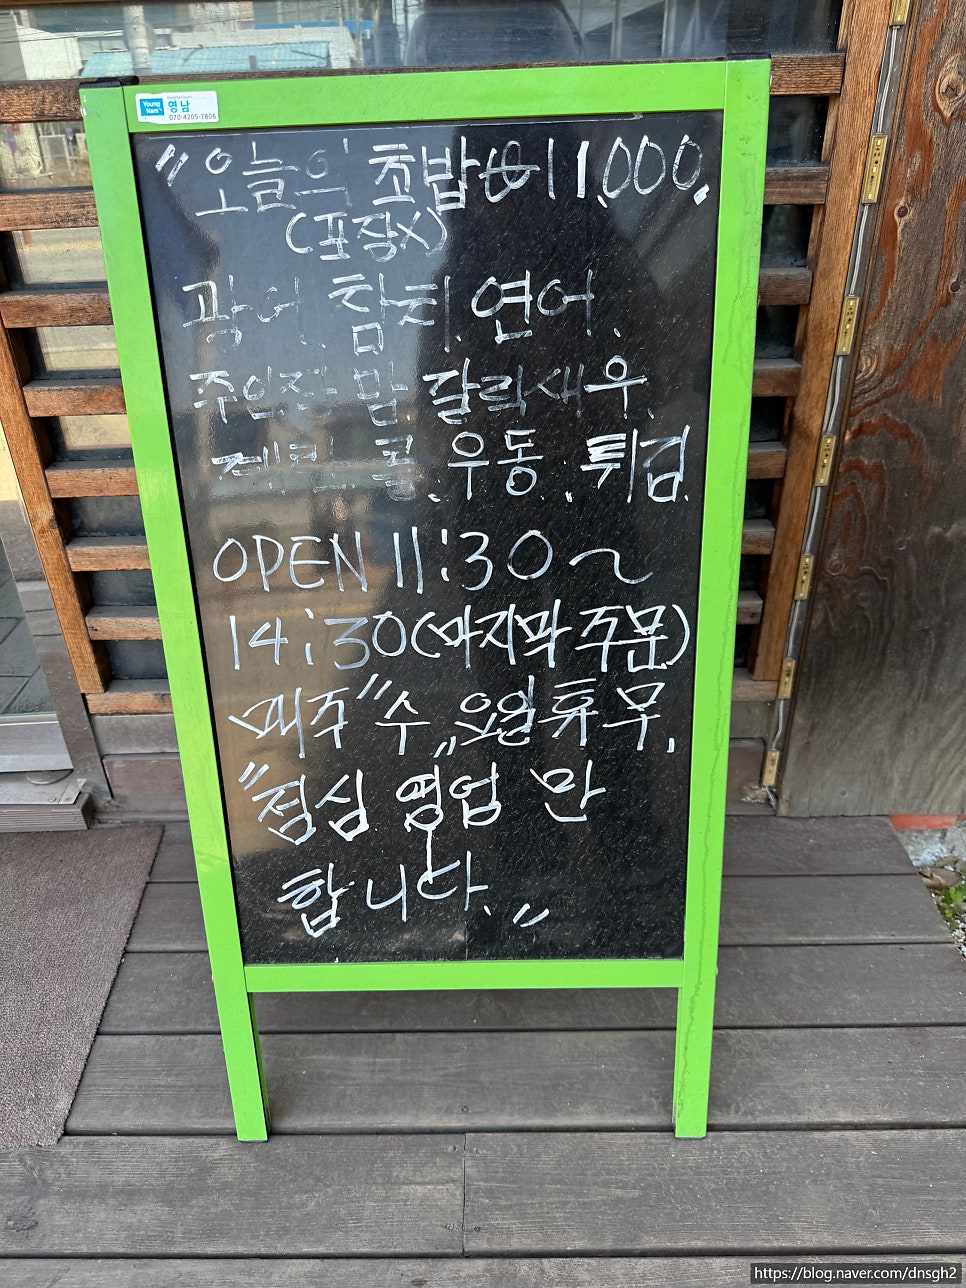 Young Nam 영남
070-4205-7806
"오늘의 초밥 ₩11,000.
(포장X)
광어. 참치. 연어.
주인장 맘. 갈릭새우.
우동. 튀김.
OPEN 11:30~
14:30(마지막 주문)
매주 "수" 요일 휴무.
"점심 영업 만
합니다."
https://blog.naver.com/dnsgh2